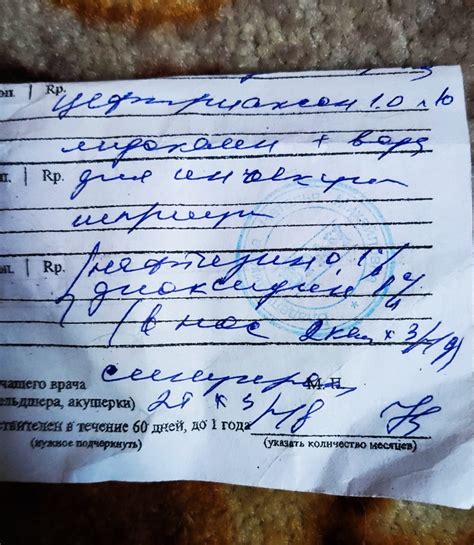 Rp.
цефтриаксон 1.0 №10
лидокаин + вода
п. | Rp. для инъекций
шприцы
оп. | Rp. нафтизин 0,1%
диоксидин
(в нос 2 кап х 3/
чащего врача М.П.
ельдшера, акушерки) 2т х 3/
ствителен в течение 60 дней, до 1 года
(нужное подчеркнуть) (указать количество месяцев)